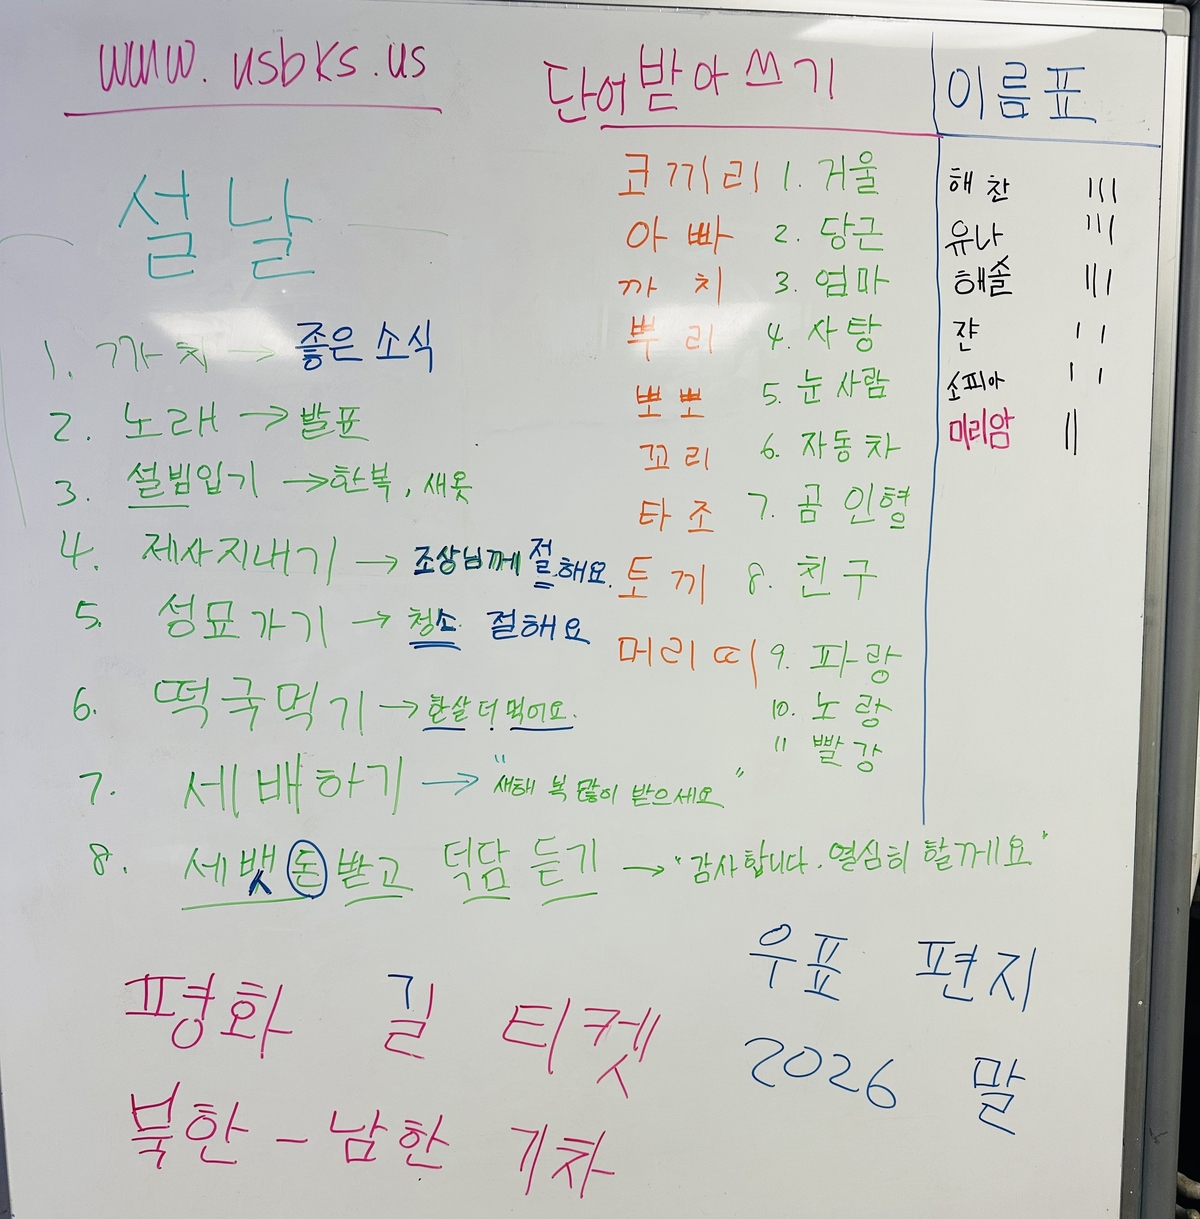 www.usbks.us
설날
1. 까치 → 좋은 소식
2. 노래 → 발표
3. 설빔입기 → 한복, 새옷
4. 제사지내기 → 조상님께 절해요.
5. 성묘가기 → 청소 절해요
6. 떡국먹기 → 한살 더 먹어요.
7. 세배하기 → "새해 복 많이 받으세요"
8. 세뱃돈받고 덕담 듣기 → "감사합니다. 열심히 할께요"
단어받아쓰기
코끼리
아빠
까치
뿌리
뽀뽀
꼬리
타조
토끼
머리띠
1. 거울
2. 당근
3. 엄마
4. 사탕
5. 눈사람
6. 자동차
7. 곰인형
8. 친구
9. 파랑
10. 노랑
11 빨강
이름표
해찬 |||
유나 |||
해솔 |||
쟌 ||
소피아 ||
미리암 ||
평화 길 티켓
북한 - 남한 기차
우표 편지
2026 말